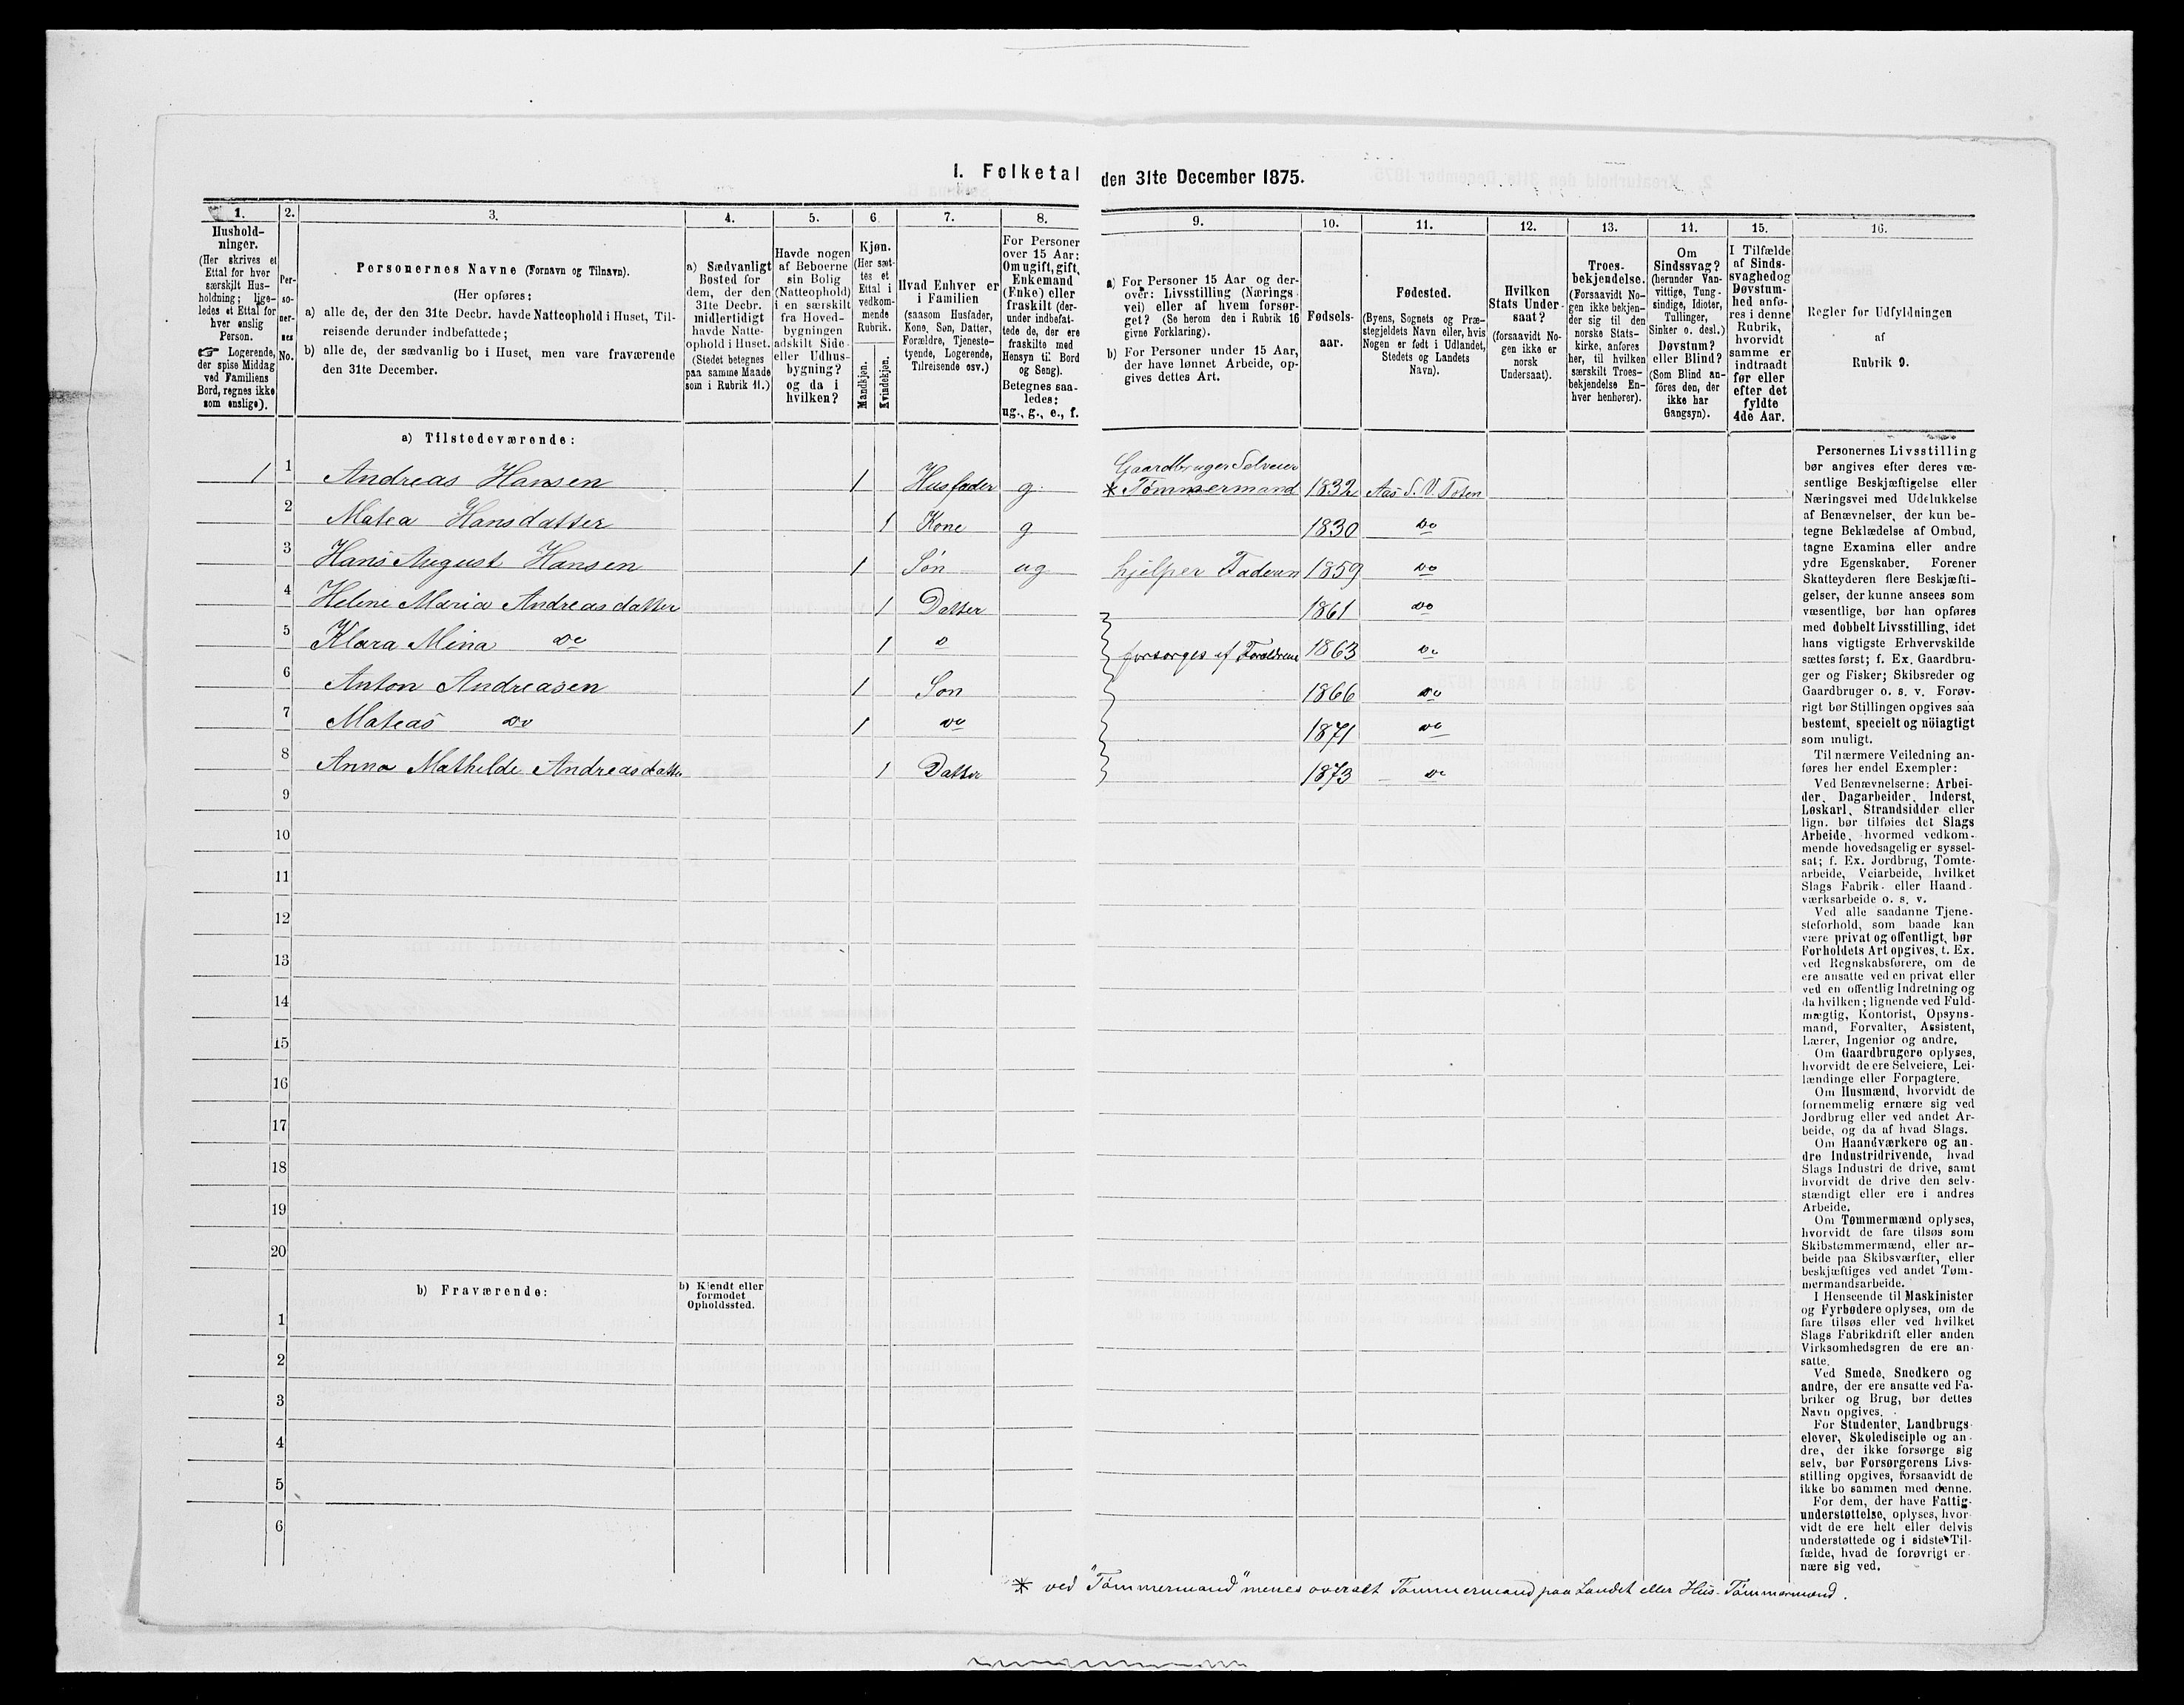 I. Folketal den 31te December 1875.
1. 2. 3. 4. 5. 6. 7. 8. 9. 10. 11. 12. 13. 14. 15. 16.
Hushold-
ninger.
(Her skrives et
Ettal for hver
særskilt Hus-
holdning; lige-
ledes et Ettal for
hver enslig
Person.
☞ Logerende,
der spise Middag
ved Familiens
Bord, regnes ikke
som enslige).
Per-
so-
ner-
nes
No.
Personernes Navne (Fornavn og Tilnavn).
(Her opføres:
a) alle de, der den 31te Decbr. havde Natteophold i Huset, Til-
reisende derunder indbefattede;
b) alle de, der sædvanlig bo i Huset, men vare fraværende
den 31te December.
a) Sædvanligt
Bosted for
dem, der den
31te Decbr.
midlertidigt
havde Natte-
ophold i Huset.
(Stedet betegnes
paa samme Maade
som i Rubrik 11.)
Havde nogen
af Beboerne
sin Bolig
(Natteophold)
i en særskilt
fra Hoved-
bygningen
adskilt Side-
eller Udhus-
bygning?
og da i
hvilken?
Kjøn.
(Her sæt-
tes et
Ettal i
vedkom-
mende
Rubrik.
Mandkjøn.
Kvindekjøn.
Hvad Enhver er
i Familien
(saasom Husfader,
Kone, Søn, Datter,
Forældre, Tjeneste-
tyende, Logerende,
Tilreisende osv.)
For Personer
over 15 Aar:
Om ugift, gift,
Enkemand
(Enke) eller
fraskilt (der-
under indbefat-
tede de, der ere
fraskilte med
Hensyn til Bord
og Seng).
Betegnes saa-
ledes:
ug., g., e., f.
a) For Personer 15 Aar og der-
over: Livsstilling (Nærings-
vei) eller af hvem forsør-
get? (Se herom den i Rubrik 16
givne Forklaring).
b) For Personer under 15 Aar,
der have lønnet Arbeide, op-
gives dettes Art.
Fødsels-
aar.
Fødested.
(Byens, Sognets og Præ-
stegjeldets Navn eller, hvis
Nogen er født i Udlandet,
Stedets og Landets
Navn).
Hvilken
Stats Under-
saat?
(forsaavidt No-
gen ikke er
norsk
Undersaat).
Troes-
bekjendelse.
(Forsaavidt No-
gen ikke bekjen-
der sig til den
norske Stats-
kirke, anføres
her, til hvilken
særskilt Troes-
bekjendelse En-
hver henhører).
Om
Sindssvag?
(herunder Van-
vittige, Tung-
sindige, Idioter,
Tullinger,
Sinker o. desl.)
Døvstum?
eller Blind?
(Som Blind an-
föres den, der
ikke har
Gangsyn).
I Tilfælde
af Sinds-
svaghed og
Døvstum-
hed anfø-
res i denne
Rubrik,
hvorvidt
samme er
indtraadt
før eller
efter det
fyldte
4de Aar.
Regler for Udfyldningen
af
Rubrik 9.
a) Tilstedeværende:
Gaardbruger Selveier
1 1 Andreas Hansen 1 Husfader g. * Tømmermand 1832 Aas S. V. Toten
2 Matea Hansdatter 1 Kone g 1830 do
3 Hans August Hansen 1 Søn ug hjelper Faderen 1859 do
4 Helene Maria Andreasdatter 1 Datter 1861 do
5 Klara Mina do 1 d forsørges af Forældrene 1863 do
6 Anton Andreasen 1 Søn 1866 do
7 Mateas do 1 do 1871 do
8 Anna Mathilde Andreasdatter 1 Datter 1873 do
9
10
11
12
13
14
15
16
17
18
19
20
b) Fraværende:
b) Kjendt eller
formodet
Opholdssted.
1
2
3
4
5
6
Personernes Livsstilling
bør angives efter deres væ-
sentlige Beskjæftigelse eller
Næringsvei med Udelukkelse
af Benævnelser, der kun be-
tegne Beklædelse af Ombud,
tagne Examina eller andre
ydre Egenskaber. Forener
Skatteyderen flere Beskjæfti-
gelser, der kunne ansees som
væsentlige, bør han opføres
med dobbelt Livsstilling, idet
hans vigtigste Erhvervskilde
sættes først; f. Ex. Gaardbru-
ger og Fisker; Skibsreder og
Gaardbruger o. s. v. Forøv-
rigt bør Stillingen opgives saa
bestemt, specielt og nöiagtigt
som muligt.
Til nærmere Veiledning an-
føres her endel Exempler:
Ved Benævnelserne: Arbei-
der, Dagarbeider, Inderst,
Løskarl, Strandsidder eller
lign. bør tilføies det Slags
Arbeide, hvormed vedkom-
mende hovedsagelig er syssel-
sat; f. Ex. Jordbrug, Tomte-
arbeide, Veiarbeide, hvilket
Slags Fabrik- eller Haand-
værksarbeide o. s. v.
Ved alle saadanne Tjene-
steforhold, som baade kan
være privat og offentligt, bør
Forholdets Art opgives, t. Ex.
ved Regnskabsførere, om de
ere ansatte ved en privat eller
ved en offentlig Indretning og
da hvilken; lignende ved Fuld-
mægtig, Kontorist, Opsyns-
mand, Forvalter, Assistent,
Lærer, Ingeniør og andre.
Om Gaardbrugere oplyses,
hvorvidt de ere Selveiere, Lei-
lændinge eller Forpagtere.
Om Husmænd, hvorvidt de
fornemmelig ernære sig ved
Jordbrug eller ved andet Ar-
beide, og da af hvad Slags.
Om Haandværkere og an-
dre Industridrivende, hvad
Slags Industri de drive, samt
hvorvidt de drive den selv-
stændigt eller ere i andres
Arbeide.
Om Tømmermænd oplyses,
hvorvidt de fare tilsøs som
Skibstømmermænd, eller ar-
beide paa Skibsværfter, eller
beskjæftiges ved andet Tøm-
mermandsarbeide.
I Henseende til Maskinister
og Fyrbødere oplyses, om de
fare tilsøs eller ved hvilket
Slags Fabrikdrift eller anden
Virksomhedsgren de ere an-
satte.
Ved Smede, Snedkere og
andre, der ere ansatte ved Fa-
briker og Brug, bør dettes
Navn opgives.
For Studenter, Landbrugs-
elever, Skoledisciple og an-
dre, der ikke forsørge sig
selv, bør Forsørgerens Livs-
stilling opgives, forsaavidt de
ikke bo sammen med denne.
For dem, der have Fattig-
understøttelse, oplyses, hvor-
vidt de ere helt eller delvis
understøttede og i sidste Til-
fælde, hvad de forøvrigt er-
nære sig ved.
* ved "Tømmermand" menes overalt Tømmermand paa Landet eller Hus-Tømmermand.